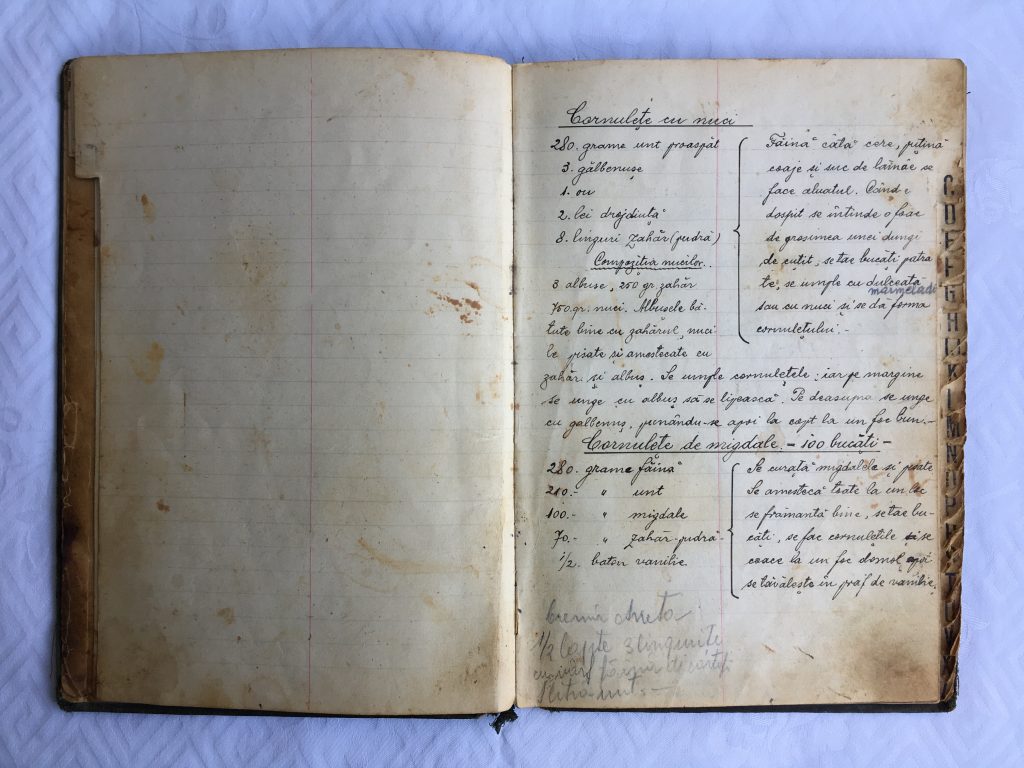 Cornulețe cu nuci
280. grame unt proaspăt
3. gălbenușe
1. ou
2. lei drojdiuță
8. linguri zahăr (pudră)
Făină câtă cere, puțină
coaje și suc de lămâe se
face aluatul. Când e
dospit se întinde o foae
de grosimea unei dungi
de cuțit, se tae bucăți pătra
te, se umple cu dulceață
marmeladă
sau cu nuci și se dă forma
cornulețului.-
Compoziția nucilor.
3 albușe, 250 gr. zahăr
750 gr. nuci. Albușele bă-
tute bine cu zahărul, nuci
le pisate și amestecate cu
zahăr și albuș. Se umple cornulețele; iar pe margine
se unge cu albuș să se lipească. Pe deasupra se unge
cu gălbenuș, punându-se apoi la copt la un foc bun.-
Cornulețe de migdale - 100 bucăți -
280. grame făină
210.- " unt
100.- " migdale
70.- " zahăr-pudră-
1/2. baton vanilie
Se curăță migdalele și pisate
Se amestecă toate la un loc
se frământă bine, se tae bu-
căți, se fac cornulețile și se
coace la un foc domol, apoi
se tăvălește în praf de vanilie.
Cremă
1/2 lapte 3 lingurițe
cu făină de cartofi
unt.-
C
D
E
F
G
H
I
K
L
M
N